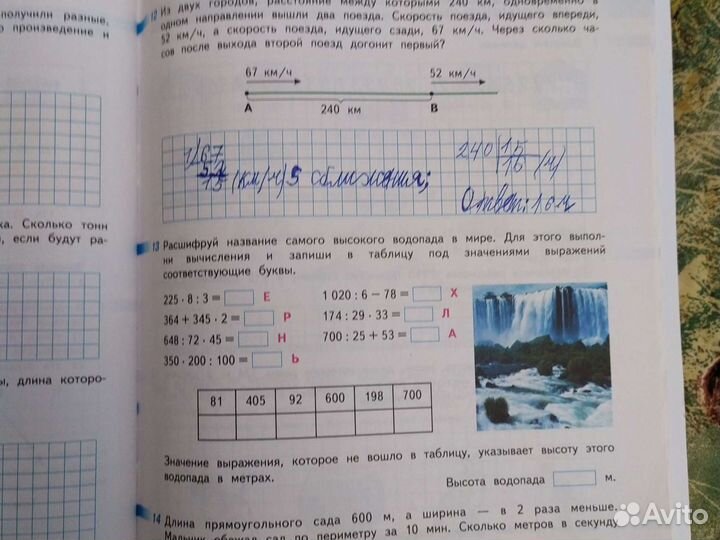 получили разные,
произведение и
12 Из двух городов, расстояние между которыми 240 км, одновременно в
одном направлении вышли два поезда. Скорость поезда, идущего впереди,
52 км/ч, а скорость поезда, идущего сзади, 67 км/ч. Через сколько ча-
сов после выхода второй поезд догонит первый?
67 км/ч 52 км/ч
А 240 км В
1) 67
52
15 (км/ч) сближения;
240 15
16 (ч)
Ответ:
ка. Сколько тонн
если будут ра-
13 Расшифруй название самого высокого водопада в мире. Для этого выпол-
ни вычисления и запиши в таблицу под значениями выражений
соответствующие буквы.
225 · 8 : 3 = Е
1 020 : 6 − 78 = Х
364 + 345 · 2 = Р
174 : 29 · 33 = Л
648 : 72 · 45 = Н
700 : 25 + 53 = А
350 · 200 : 100 = Ь
ы, длина которо-
81 405 92 600 198 700
Значение выражения, которое не вошло в таблицу, указывает высоту этого
водопада в метрах.
Высота водопада м.
14 Длина прямоугольного сада 600 м, а ширина — в 2 раза меньше.
Мальчик обежал сад по периметру за 10 мин. Сколько метров в секунду
Avito